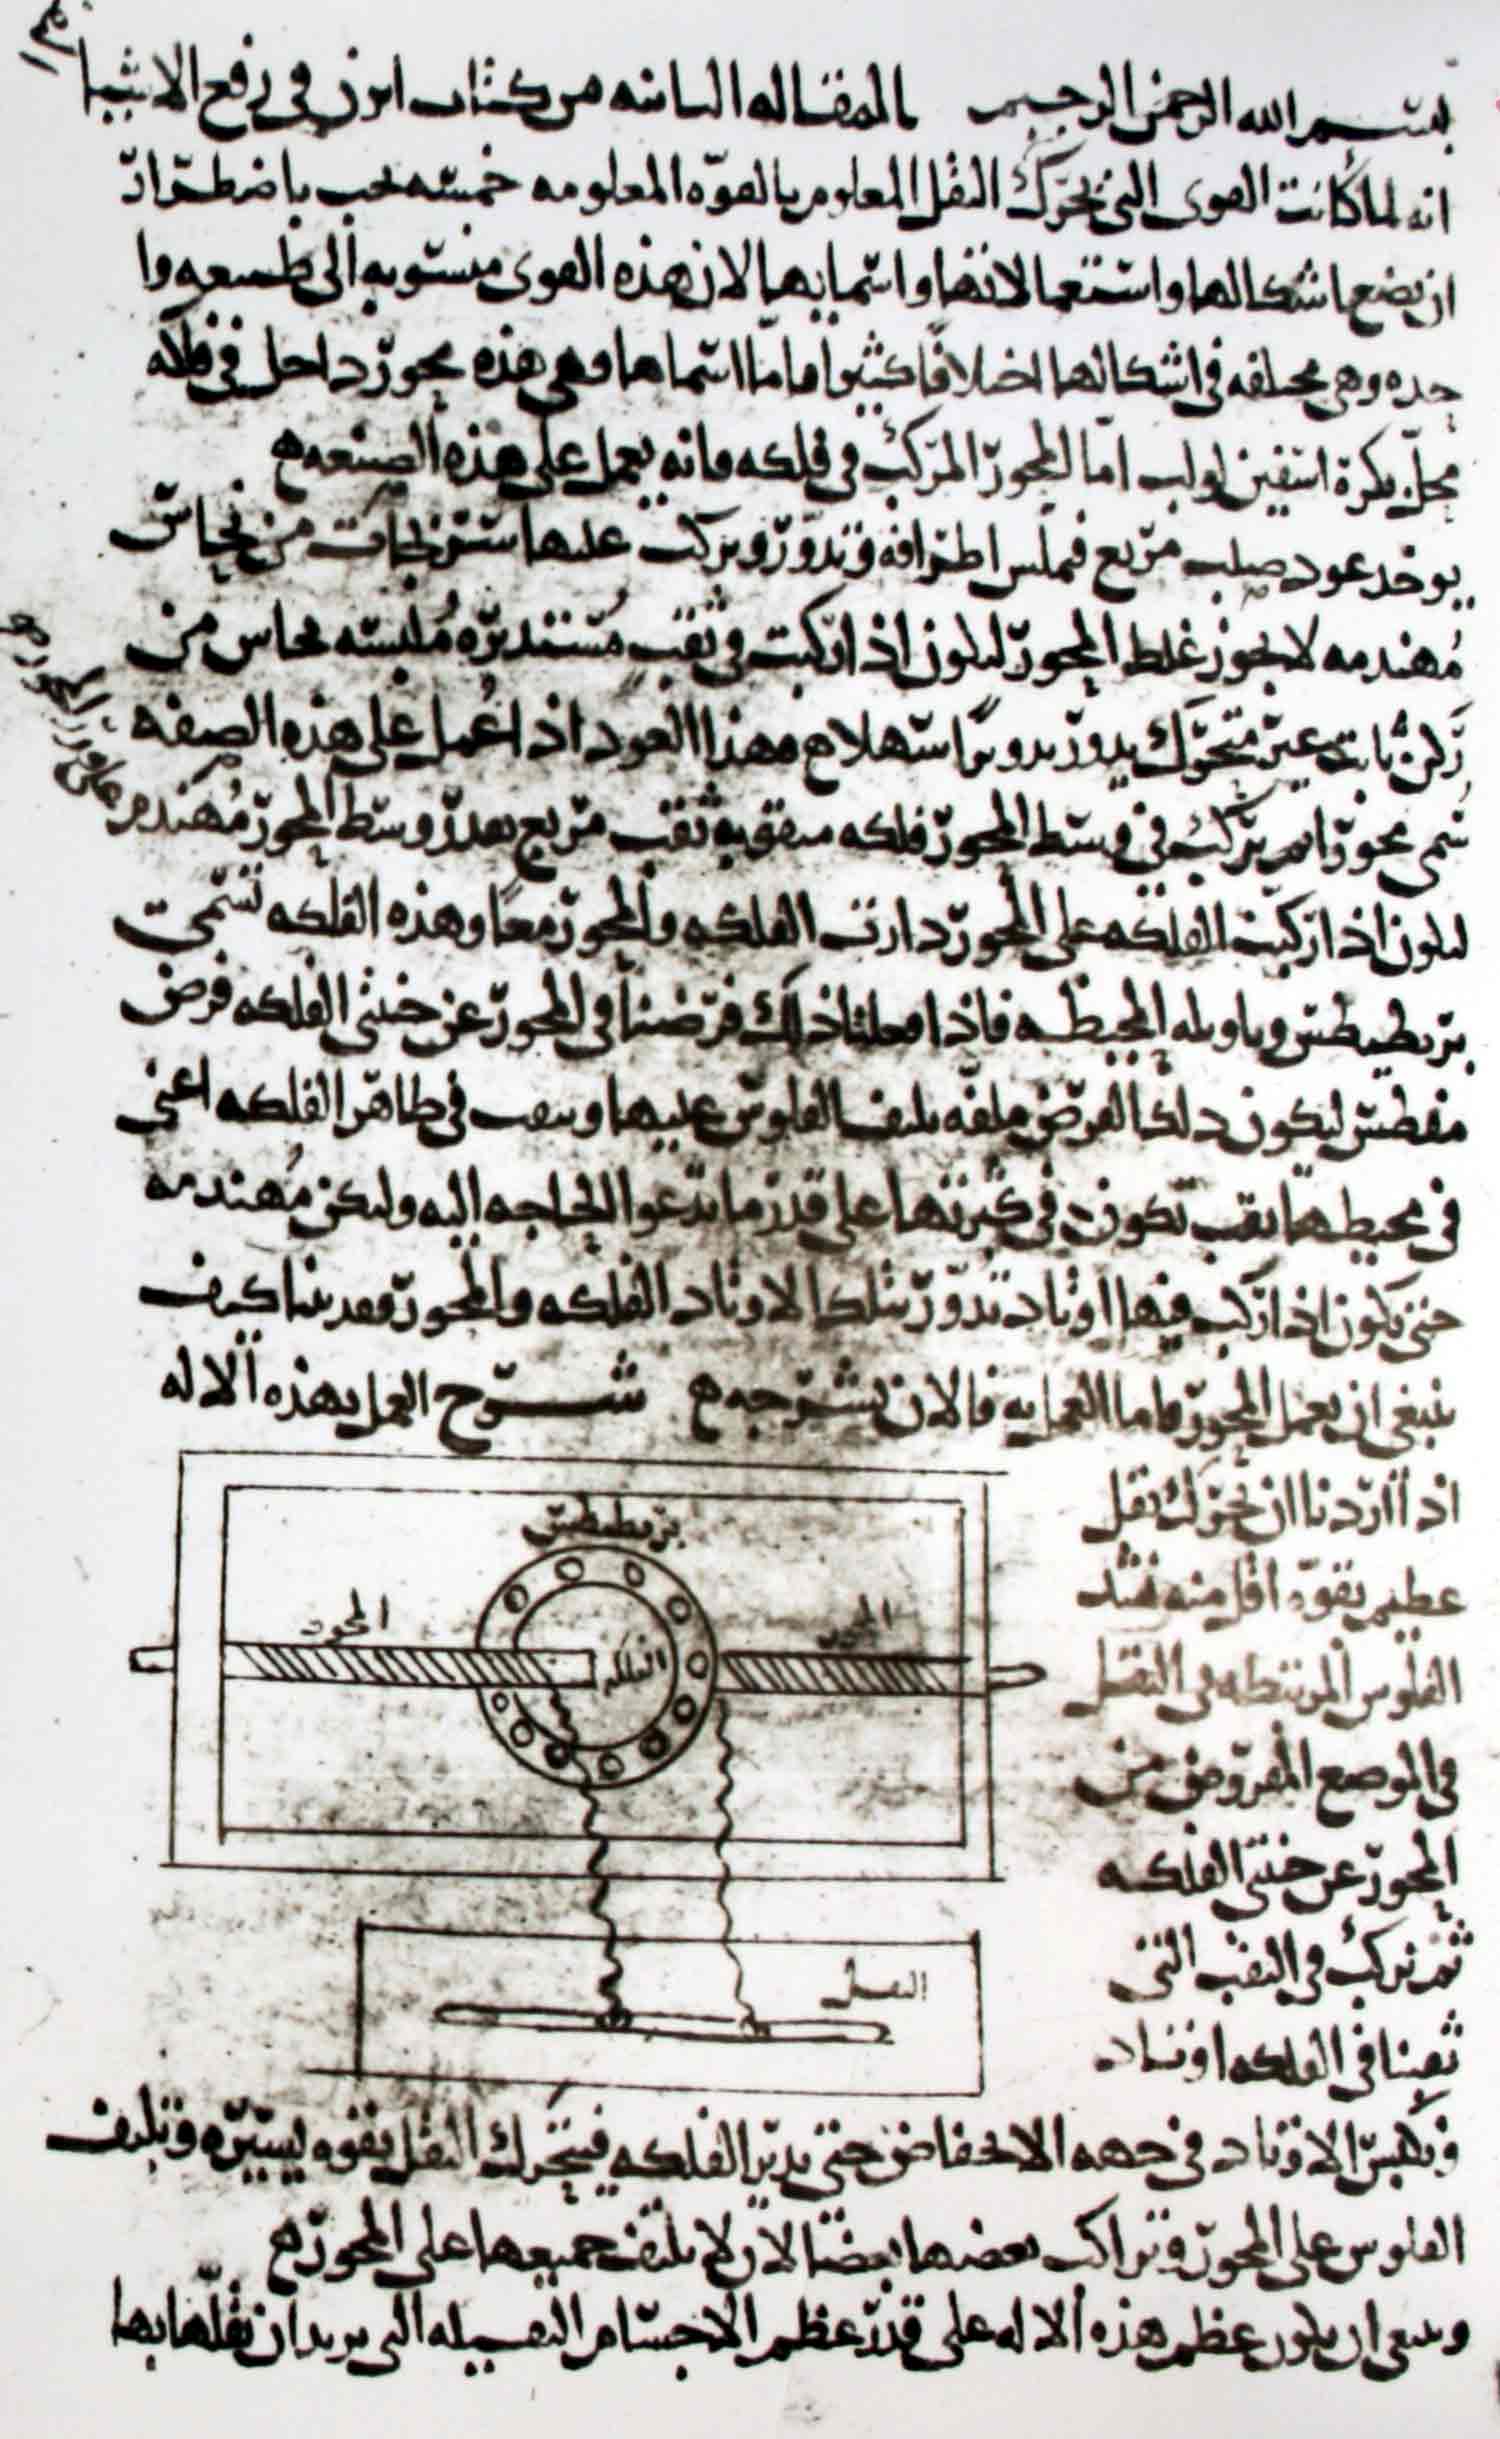 بسم الله الرحمن الرحيم المقاله الثانيه من كتاب ايرن في رفع الاشيا
انه لما كانت القوى التي تحرك الثقل المعلوم بالقوه المعلومه خمسه يجب باضطرار
ان نضع اشكالها واستعمالاتها واسمايها لان هذه القوى منسوبه الى طبيعه وا
حده وهي مختلفه في اشكالها اختلافا كثيرا فاما اسماها وهي هذه محور داخل في فلكه
مخل بكرة اسفين لولب اما المحور المركب في فلكه فانه يعمل على هذه الصنعه ه
يوخذ عود صلب مربع فيملس اطرافه وتدور ويركب عليها شنزجات من نحاس
مهندمه لا يجوز غلظ المحور ليكون اذا ركبت في ثقب مستديره ملبسه نحاس من
ركن ثابت غير متحرك يدور تدويرا سهلا ه فهذا العود اذا عمل على هذه الصفه
سمي محورا ثم يركب في وسط المحور فلكه مثقوبه ثقب مربع بقدر وسط المحور مهندم
ليكون اذا ركبت الفلكه على المحور دارت الفلكه والمحور معا وهذه الفلكه تسمى
بريطيطس وتاويله المحيطه فاذا فعلنا ذلك فرضنا في المحور عن جنبتي الفلكه فرض
مفطس ليكون ذلك الفرض ملفه يلتف القلوس عليها ونثقب في ظاهر الفلكه اعني
في محيطها ثقب تكون في كثرتها على قدر ما تدعوا الحاجه اليه ولتكن مهندمه
حتى تكون اذا ركب فيها اوتاد تدور بتلك الاوتاد الفلكه والمحور فقد بينا كيف
ينبغي ان يعمل المحور فاما العمل به فالان نشرحه ه شرح العمل بهذه الاله
اذا اردنا ان نحرك ثقل
عظيم بقوه اقل منه نشد
القلوس المرتبطه في الثقل
في الموضع المفروض من
المحور عن جنبتي الفلكه
ثم نركب في الثقب التي
ثقبنا في الفلكه اوتاد
بريطيطس
المحور
المحور
الفلكه
الثقل
ونكبس الاوتاد في جهه الانخفاض حتى تدير الفلكه فيتحرك الثقل بقوه يسيره وتلتف
القلوس على المحور وتراكب بعضها بعضا لان لا يلتف جميعها على المحور ه
وينبغي ان يكون عظم هذه الاله على قدر عظم الاجسام الثقيله التي يريد ان ينقلها بها